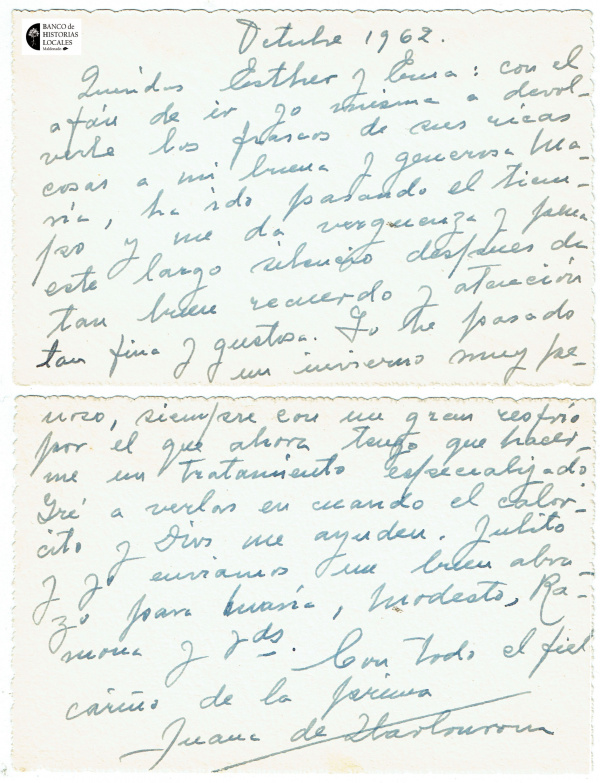 BANCO de
HISTORIAS
LOCALES
Maldonado
Octubre 1962.
Queridas Esther y Ema: con el
afán de ir yo misma a devol-
verle los frascos de sus ricas
cosas a mi buena y generosa Ma-
ría, ha ido pasando el tiem-
po y me da verguenza y pena
este largo silencio despues de
tan buen recuerdo y atención
tan fina y gustosa. Yo he pasado
un invierno muy pe-
noso, siempre con un gran resfrío
por el que ahora tengo que hacer-
me un tratamiento especializado
Iré a verlas en cuando el calor-
cito y Dios me ayuden. Julito
y yo enviamos un buen abra-
zo para María, Modesto, Ra-
mona y Vds.
Con todo el fiel
cariño de la prima
Juana de Ibarbourou